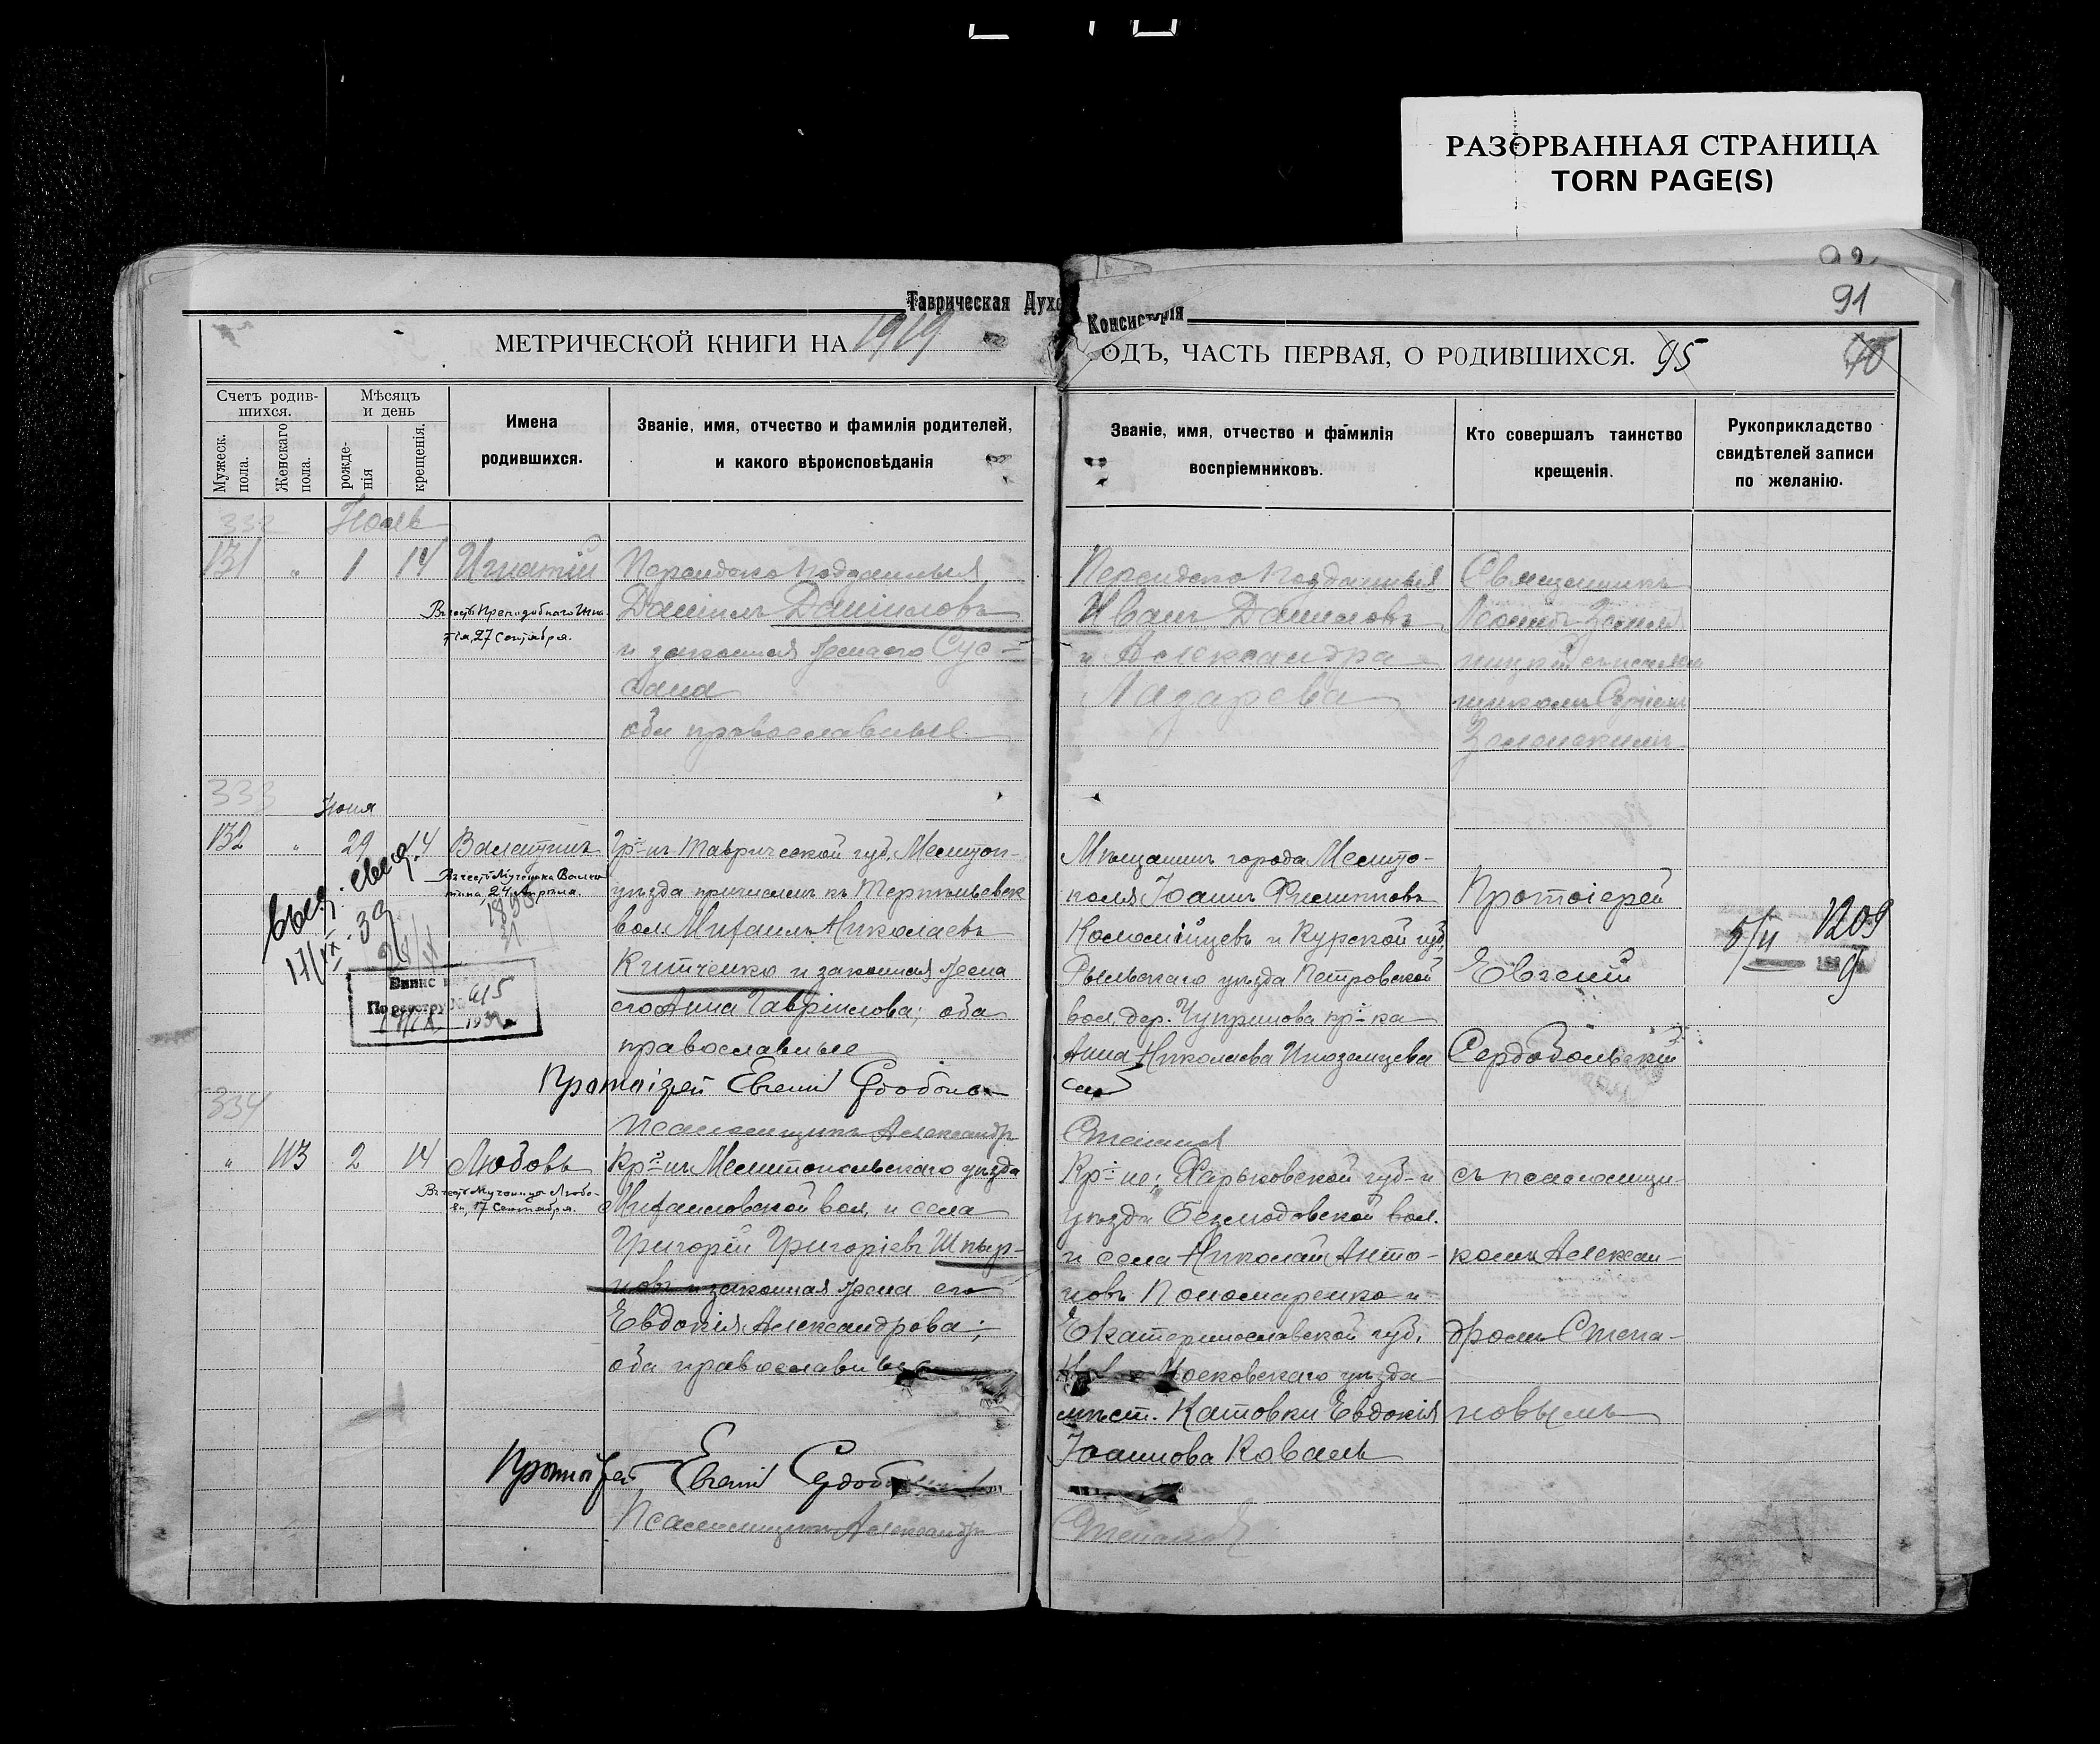 РАЗОРВАННАЯ СТРАНИЦА
TORN PAGE(S)
92
91
Таврическая Духо
Консисторія
МЕТРИЧЕСКОЙ КНИГИ НА 1919
ОДЪ, ЧАСТЬ ПЕРВАЯ, О РОДИВШИХСЯ. 95
Счетъ родив-
шихся.
Мужеск.
пола.
Женскаго
пола.
Мѣсяцъ
и день
рожде-
нія
крещенія.
Имена
родившихся.
Званіе, имя, отчество и фамилія родителей,
и какого вѣроисповѣданія
Званіе, имя, отчество и фамилія
воспріемниковъ.
Кто совершалъ таинство
крещенія.
Рукоприкладство
свидѣтелей записи
по желанію.
332
131 " 1 14 Игнатій
Въ честь Преподобнаго Игна-
тія, 27 Сентября.
Персидско подданный
Даніилъ Даніиловъ
и законная жена его Сус-
сана
оба православные
Персидско подданный
Иванъ Даниловъ
и Александра
Лазарева
Священникъ
333
Іюня
132 " 29 14 Валентинъ
Въ честь Мученика Вален-
тина, 24 Апрѣля.
выд. свид.
17/IX 39
По реестру № 415
Гр-нъ Таврической губ. Мелитоп-
уѣзда причислен къ
вол. Михаилъ Николаевъ
Китченко и законная жена
его Анна Гавріилова; оба
православные
Протоіерей Евгеній
Псаломщикъ Александръ
Мѣщанинъ города Мелито-
поля Іоаннъ Филипповъ
Коломійцевъ и Курской губ.
Рыльскаго уѣзда Петровской
вол. дер. Чуприлова кр-ка
Анна Николаева Иноземцева
Степановъ
Протоіерей
Евгеній
Сердобольскій
5/II 1209
334
" 113 2 14 Любовь
Въ честь Мученицы Любо-
ви, 17 Сентября.
Кр-нъ Мелитопольскаго уѣзда
Михайловской вол. и села
Григорій Григоріевъ Шпыр-
новъ и законная жена его
Евдокія Александрова;
оба православные
Протоіерей Евгеній
Псаломщикъ Александръ
Кр-не: Харьковской губ- и
уѣзда Безлюдовской вол.
и села Николай Анто-
новъ Пономаренко и
Екатеринославской губ.
Московскаго уѣзда
мѣст. Катовки Евдокія
Іоаннова Коваль
Степановъ
съ псаломщи-
комъ Алексан-
дромъ Степа-
новымъ